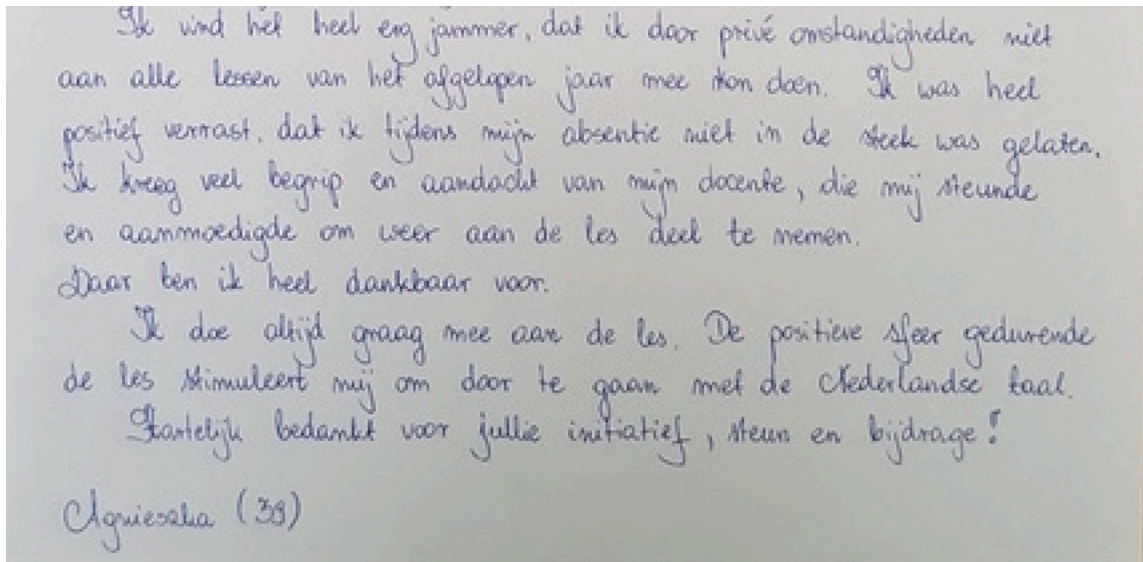 Ik vind het heel erg jammer, dat ik door privé omstandigheden niet
aan alle lessen van het afgelopen jaar mee kon doen. Ik was heel
positief verrast, dat ik tijdens mijn absentie niet in de steek was gelaten.
Ik kreeg veel begrip en aandacht van mijn docente, die mij steunde
en aanmoedigde om weer aan de les deel te nemen.
Daar ben ik heel dankbaar voor.
Ik doe altijd graag mee aan de les. De positieve sfeer gedurende
de les stimuleert mij om door te gaan met de Nederlandse taal.
Hartelijk bedankt voor jullie initiatief, steun en bijdrage!
Agnieszka (39)